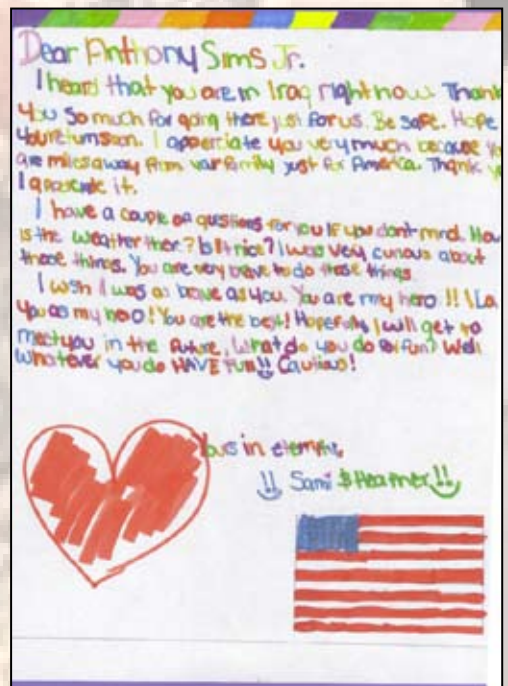 Dear Anthony Sims Jr.
I heard that you are in Iraq right now. Thank
you so much for going there just for us. Be safe. Hope
you return soon. I apperciate you very much because
are miles away from your family just for America. Thank
I it.
I have a couple of questions for you If you dont mind. How
is the weather ther? Is it nice? I was very curious about
those things. You are very brave to do those things
I wish I was as brave as you. You are my hero !! I
you as my hero! You are the best! Hopefully I will get to
meet you in the future. What do you do for fun? Well
Whatever you do HAVE FUN!! Cautious!
Yours in
!! Sami & Heather !!